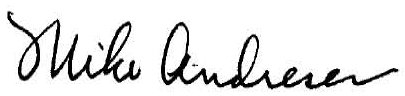 Mike Andresen